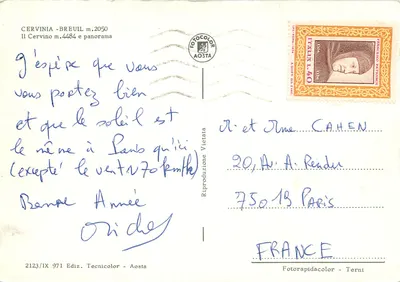 CERVINIA - BREUIL m. 2050
Il Cervino m. 4484 e panorama
FOTOCOLOR
AOSTA
ITALIA L. 40
J'espère que vous
vous portez bien
et que le soleil est
le même à Paris qu'ici
(excepté le vent 70 km/h)
Bonne Année
Michel
Riproduzione Vietata
M. et Mme CAHEN
20, Av. A. Rendu
75019 PARIS
FRANCE
2123/IX 971 Ediz. Tecnicolor - Aosta
Fotorapidacolor - Terni